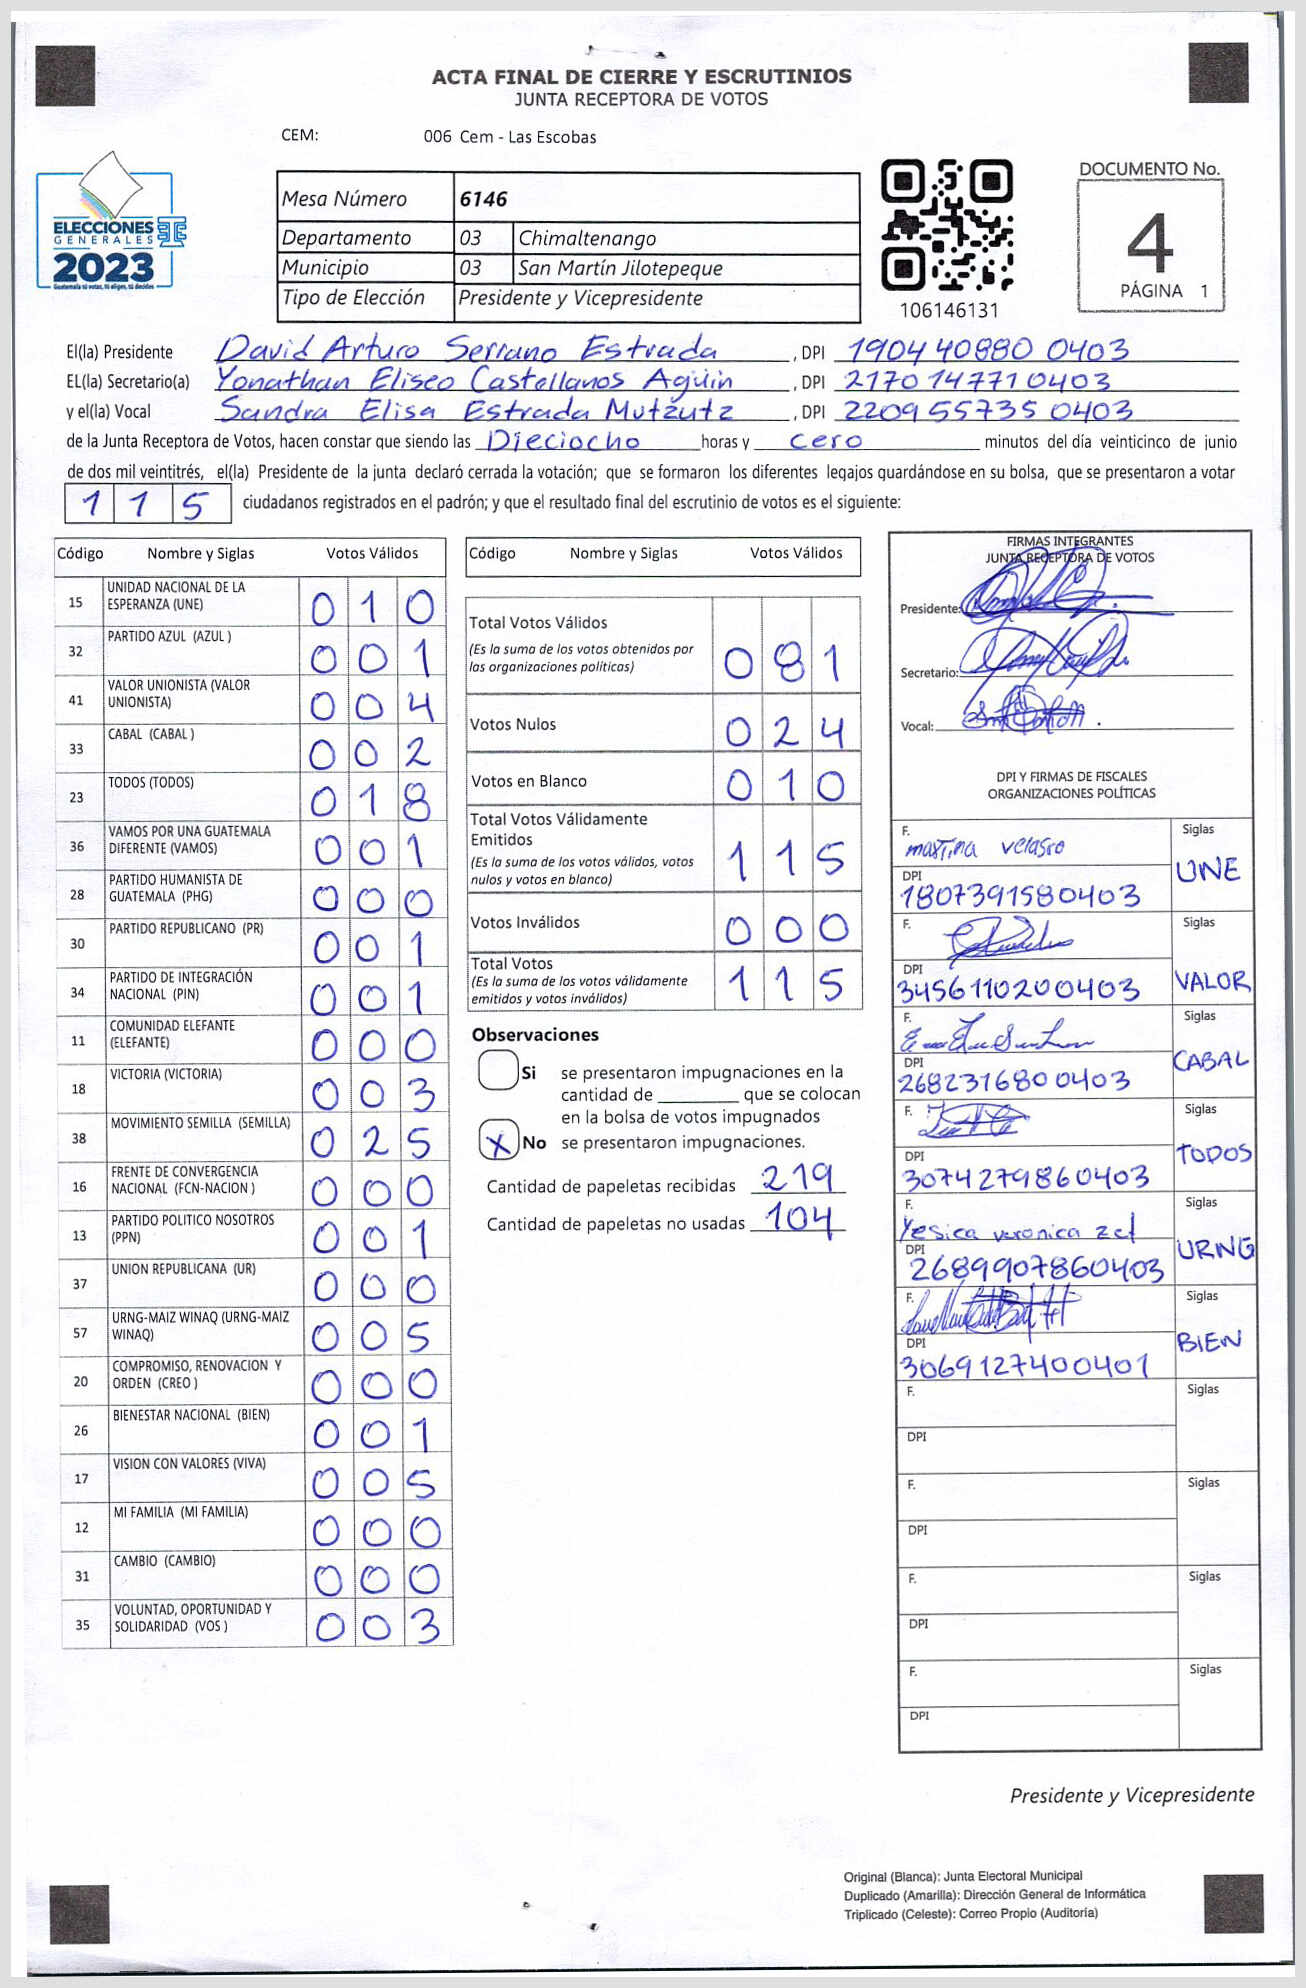 ACTA FINAL DE CIERRE Y ESCRUTINIOS
JUNTA RECEPTORA DE VOTOS
CEM: 006 Cem - Las Escobas
ELECCIONES
GENERALES
2023
Guatemala tú votas, tú eliges, tú decides
Mesa Número 6146
Departamento 03 Chimaltenango
Municipio 03 San Martín Jilotepeque
Tipo de Elección Presidente y Vicepresidente
106146131
DOCUMENTO No.
4
PÁGINA 1
El(la) Presidente David Arturo Serrano Estrada , DPI 190440880 0403
EL(la) Secretario(a) Yonathan Eliseo Castellanos Agüin , DPI 2170147710403
y el(la) Vocal Sandra Elisa Estrada Mutzutz , DPI 220955735 0403
de la Junta Receptora de Votos, hacen constar que siendo las Dieciocho horas y cero minutos del día veinticinco de junio
de dos mil veintitrés, el(la) Presidente de la junta declaró cerrada la votación; que se formaron los diferentes legajos guardándose en su bolsa, que se presentaron a votar
115 ciudadanos registrados en el padrón; y que el resultado final del escrutinio de votos es el siguiente:
Código Nombre y Siglas Votos Válidos
15 UNIDAD NACIONAL DE LA
ESPERANZA (UNE) 010
32 PARTIDO AZUL (AZUL ) 001
41 VALOR UNIONISTA (VALOR
UNIONISTA) 004
33 CABAL (CABAL ) 002
23 TODOS (TODOS) 018
36 VAMOS POR UNA GUATEMALA
DIFERENTE (VAMOS) 001
28 PARTIDO HUMANISTA DE
GUATEMALA (PHG) 000
30 PARTIDO REPUBLICANO (PR) 001
34 PARTIDO DE INTEGRACIÓN
NACIONAL (PIN) 001
11 COMUNIDAD ELEFANTE
(ELEFANTE) 000
18 VICTORIA (VICTORIA) 003
38 MOVIMIENTO SEMILLA (SEMILLA) 025
16 FRENTE DE CONVERGENCIA
NACIONAL (FCN-NACION ) 000
13 PARTIDO POLITICO NOSOTROS
(PPN) 001
37 UNION REPUBLICANA (UR) 000
57 URNG-MAIZ WINAQ (URNG-MAIZ
WINAQ) 005
20 COMPROMISO, RENOVACION Y
ORDEN (CREO ) 000
26 BIENESTAR NACIONAL (BIEN) 001
17 VISION CON VALORES (VIVA) 005
12 MI FAMILIA (MI FAMILIA) 000
31 CAMBIO (CAMBIO) 000
35 VOLUNTAD, OPORTUNIDAD Y
SOLIDARIDAD (VOS ) 003
Código Nombre y Siglas Votos Válidos
Total Votos Válidos
(Es la suma de los votos obtenidos por
las organizaciones políticas) 081
Votos Nulos 024
Votos en Blanco 010
Total Votos Válidamente
Emitidos
(Es la suma de los votos válidos, votos
nulos y votos en blanco) 115
Votos Inválidos 000
Total Votos
(Es la suma de los votos válidamente
emitidos y votos inválidos) 115
Observaciones
Si se presentaron impugnaciones en la
cantidad de ________ que se colocan
en la bolsa de votos impugnados
X No se presentaron impugnaciones.
Cantidad de papeletas recibidas 219
Cantidad de papeletas no usadas 104
FIRMAS INTEGRANTES
JUNTA RECEPTORA DE VOTOS
Presidente:
Secretario:
Vocal:
DPI Y FIRMAS DE FISCALES
ORGANIZACIONES POLÍTICAS
F. Siglas
UNE
DPI
1807391580403
F. Siglas
VALOR
DPI
3456110200403
F. Siglas
CABAL
DPI
2682316800403
F. Siglas
TODOS
DPI
3074279860403
F. Siglas
Yesica veronica
URNG
DPI
2689907860403
F. Siglas
BIEN
DPI
3069127400401
F. Siglas
DPI
F. Siglas
DPI
F. Siglas
DPI
F. Siglas
DPI
Presidente y Vicepresidente
Original (Blanca): Junta Electoral Municipal
Duplicado (Amarilla): Dirección General de Informática
Triplicado (Celeste): Correo Propio (Auditoría)